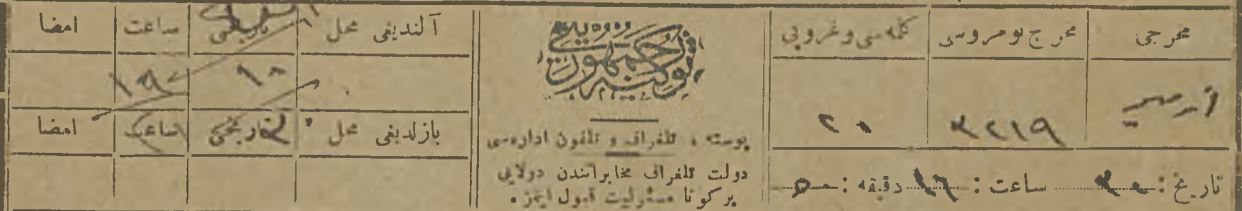 مخرجی
مخرج نومروسی
كلمه‌سی و غروپی
٣٢١٩
٢٠
تاریخ : ساعت : ١٦ دقیقه : ٥٠
توركیه جمهوریتی
پوسته ، تلغراف و تلفون اداره‌سی
دولت تلغراف مخابراتندن دولایی
بر كونا مسئولیت قبول ایتمز .
آلندیغی محل
تاریخی
ساعت
امضا
یازلدیغی محل
تاریخی
ساعت
امضا